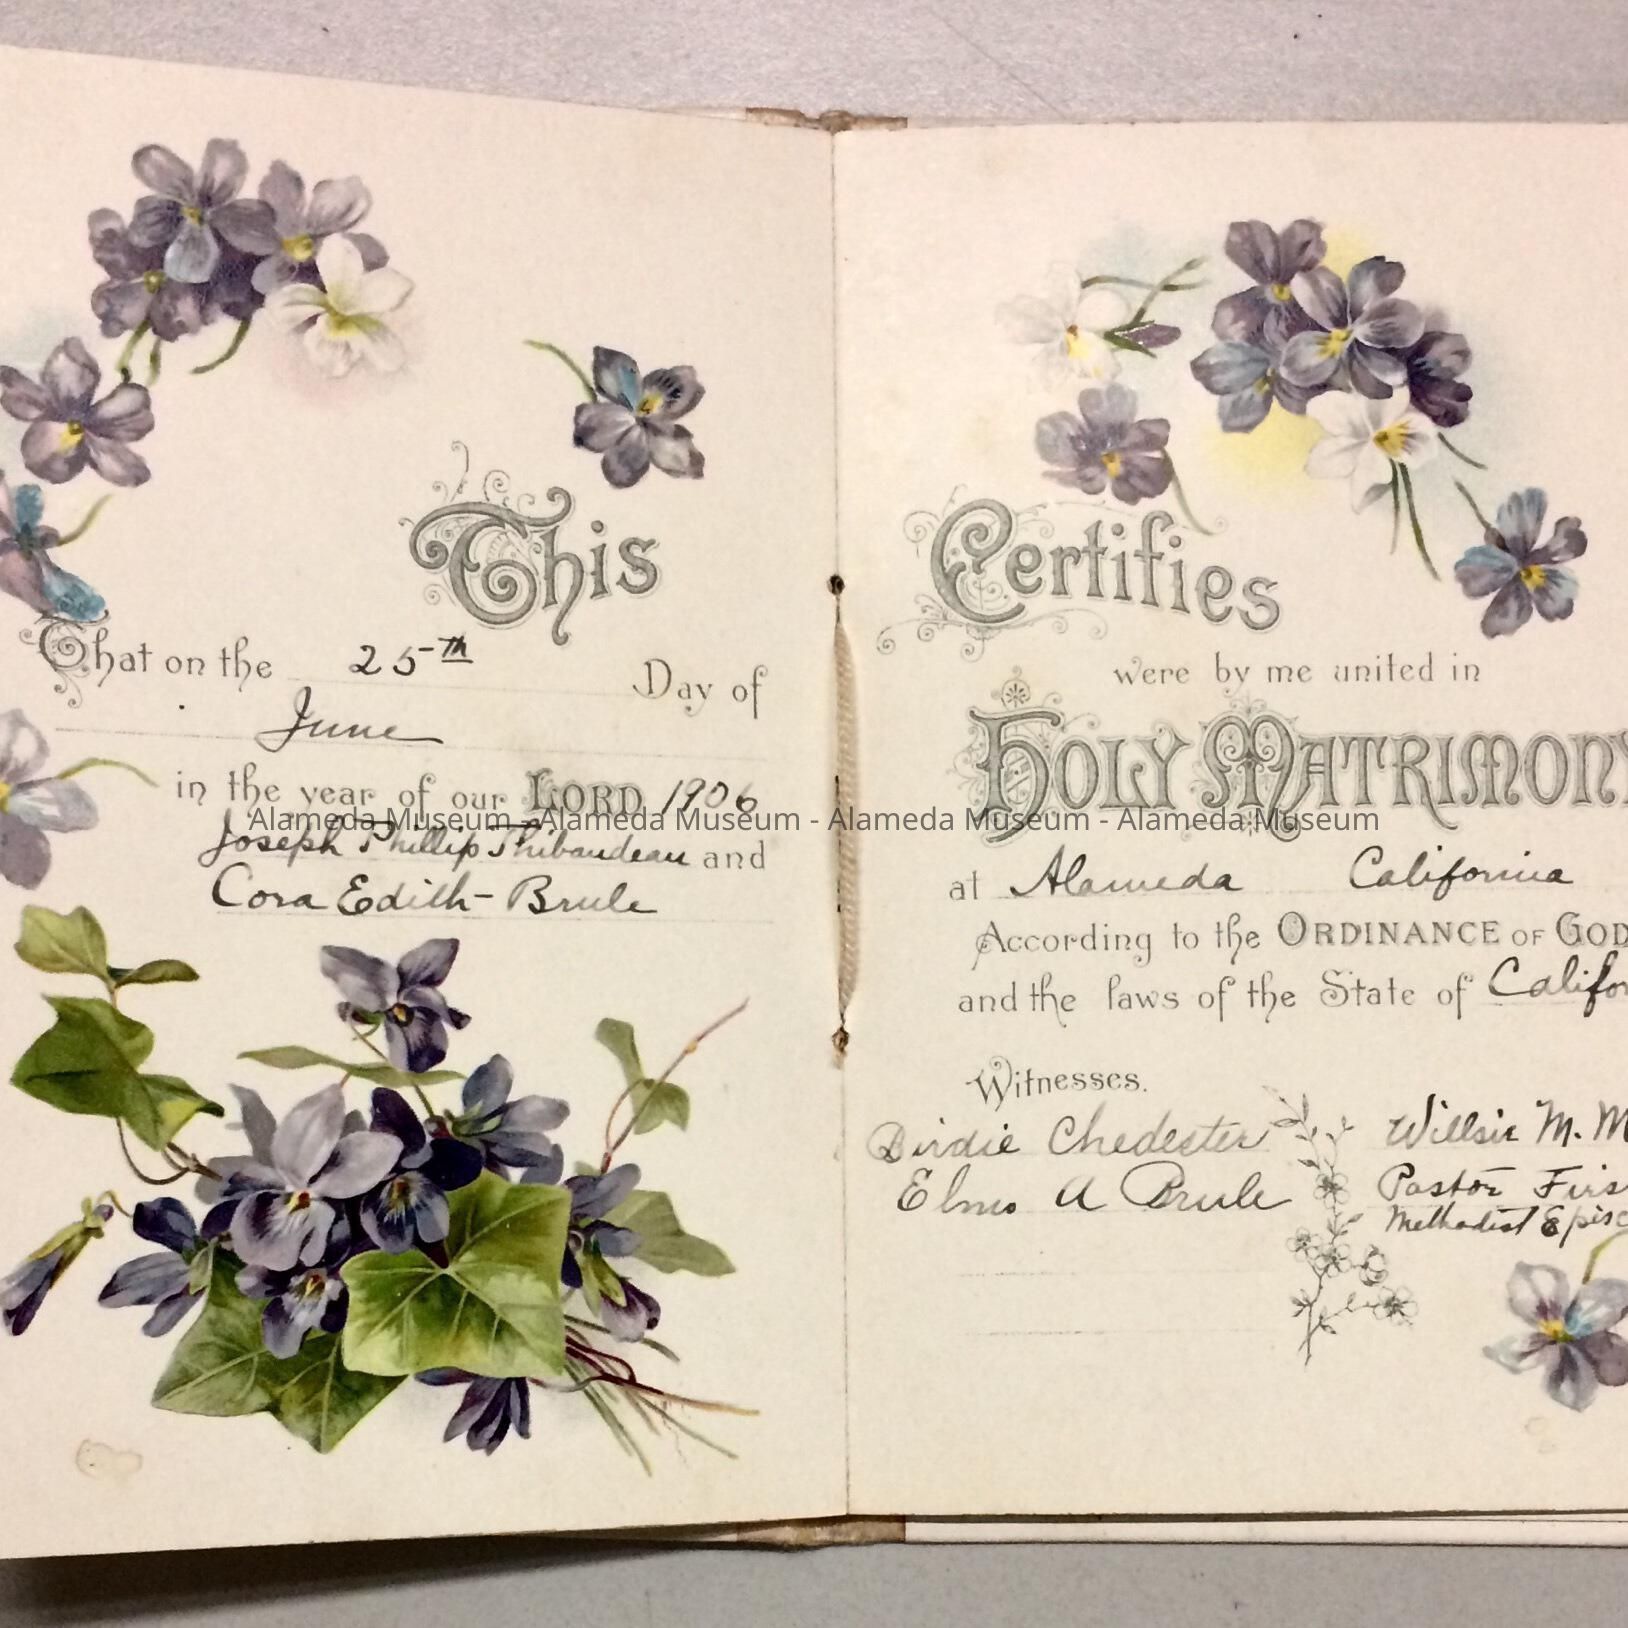 This
That on the 25th Day of
June
in the year of our LORD 1906
Joseph Phillip Thibaudeau and
Cora Edith Brule
Certifies
were by me united in
HOLY MATRIMONY
at Alameda California
According to the ORDINANCE OF GOD
and the laws of the State of Califor
Witnesses.
Birdie Chedester
Elmo A Brule
M. M
Pastor Firs
Methodist Episc
Alameda Museum - Alameda Museum - Alameda Museum - Alameda Museum